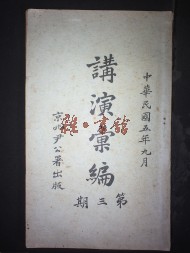 中華民國五年九月
講演彙編
第三期
京兆尹公署出版